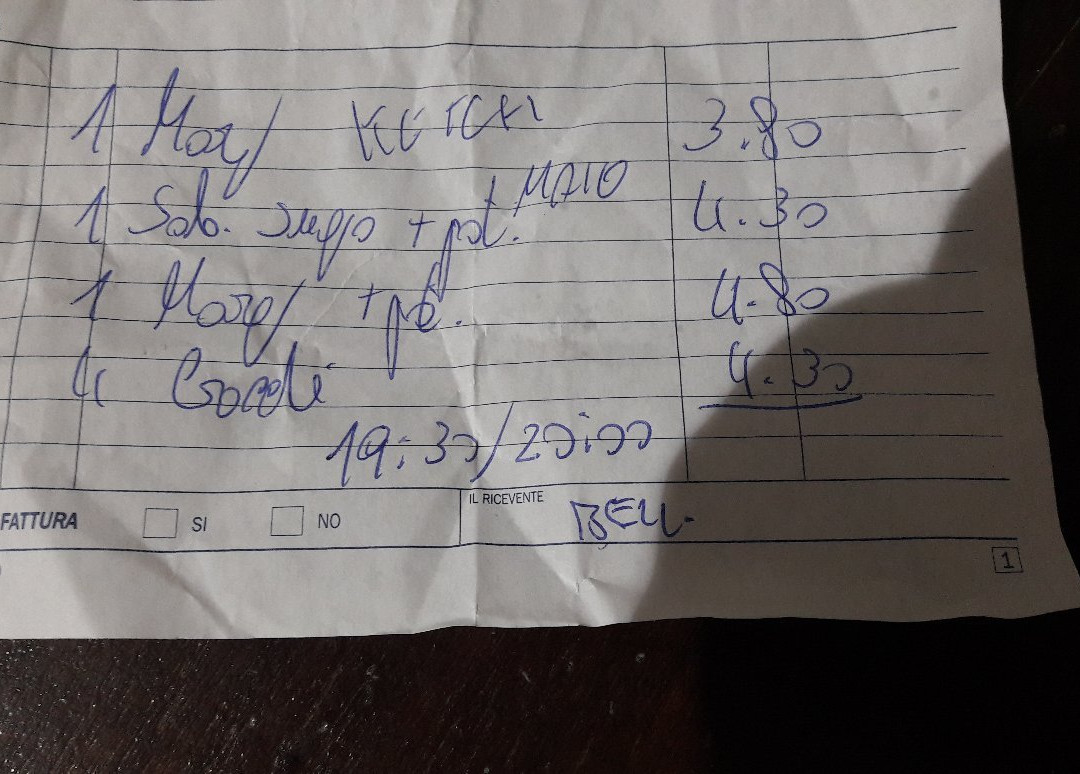 1 Marg/ KETCH 3.80
1 Salo. sugo + pat. MAIO 4.30
1 Marg/ + pat. 4.80
4 4.30
19:30/20:00
FATTURA SI NO IL RICEVENTE BELL.
1